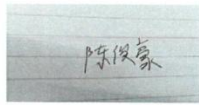 陈俊豪